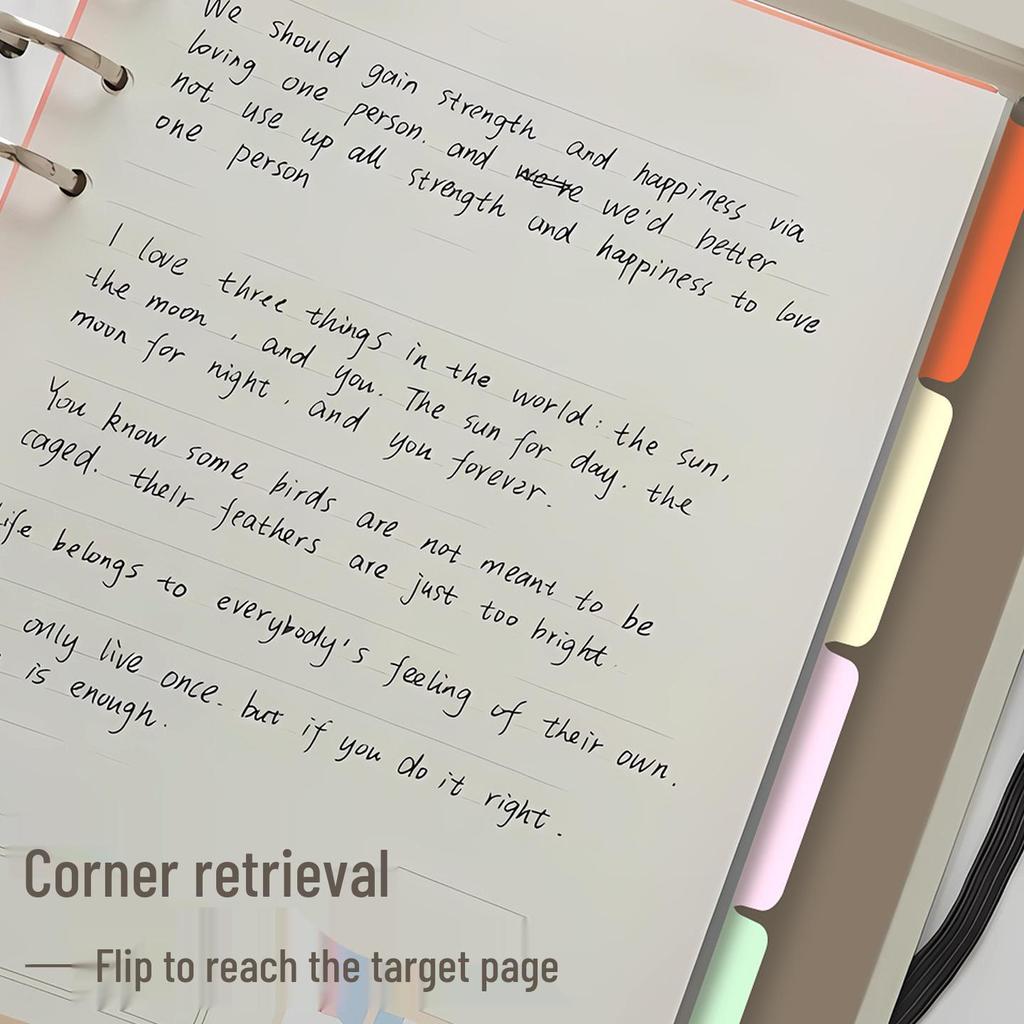 We should gain strength and happiness via
loving one person. and we're we'd better
not use up all strength and happiness to love
one person
I love three things in the world: the sun,
the moon, and you. The sun for day. the
moon for night, and you forever.
You know some birds are not meant to be
caged. their feathers are just too bright.
Life belongs to everybody's feeling of their own.
only live once. but if you do it right.
is enough.
Corner retrieval
— Flip to reach the target page